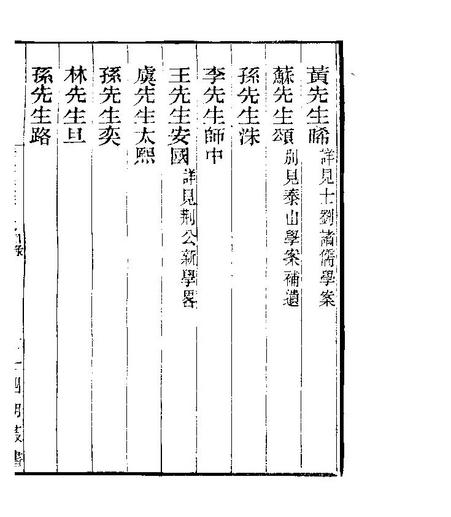 黃先生晞詳見士劉諸儒學案
蘇先生頌別見泰山學案補遺
孫先生洙
李先生師中
王先生安國詳見荆公新學畧
虞先生太熙
孫先生奕
林先生旦
孫先生路
四明叢書